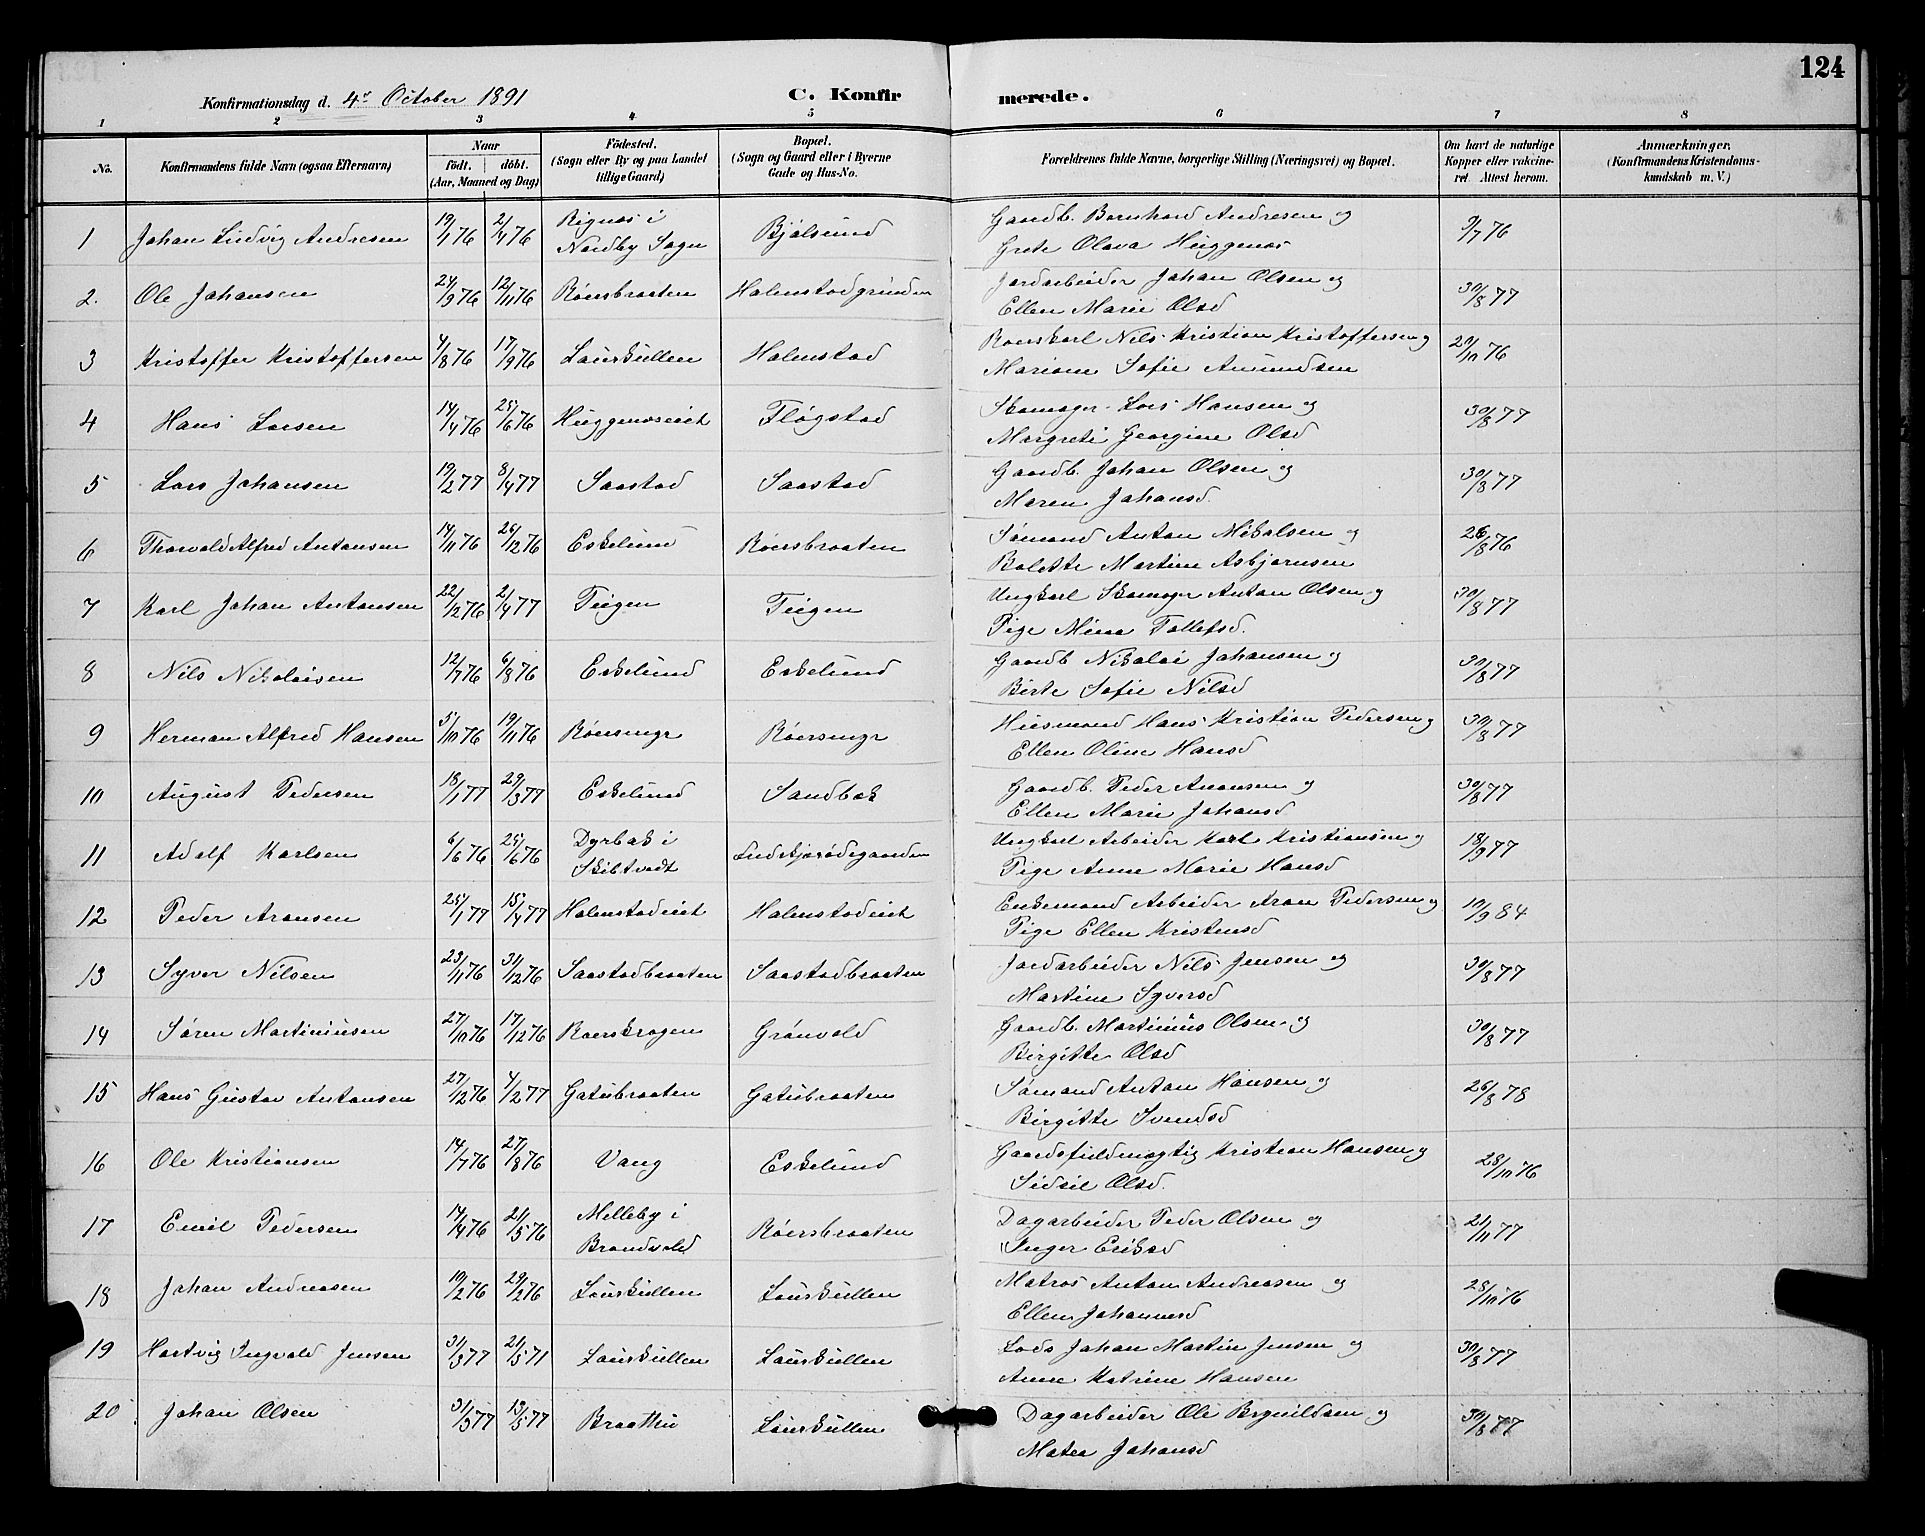 124
Konfirmationsdag d. 4de October 1891 C. Konfirmerede.
1 2 3 4 5 6 7 8
No. Konfirmandens fulde Navn (ogsaa Efternavn) Naar født. døbt. (Aar, Maaned og Dag) Fødested. (Sogn eller By og paa Landet tillige Gaard) Bopæl. (Sogn og Gaard eller i Byerne Gade og Hus-No. Forældrenes fulde Navne, borgerlige Stilling (Næringsvei) og Bopæl. Om havt de naturlige Kopper eller vakcineret Attest herom. Anmærkninger. (Konfirmandens Kristendomskundskab m. V.)
1 Johan Ludvig Andresen 19/1 76 2/4 76 Rignæs i Nordby Sogn Bjølsund Gaardb. Bernhard Andresen og Grete Olava Huggenæs 9/7 76
2. Ole Johansen 24/9 76 12/11 76 Røersbraaten Halmstadgrunden Jordarbeider Johan Olsen og Ellen Marie Olsd 30/8 77
3 Kristoffer Kristoffersen 4/8 76 17/9 76 Laurkullen Halmstad Røerskarl Nils Kristian Kristoffersen og Mariane Sofie Amundsen 20/10 76
4 Hans Larsen 14/4 76 25/6 76 Huggenæseiet Fløgstad Skomager Lars Hansen og Margrete Georgine Olsd 30/8 77
5 Lars Johansen 19/2 77 8/4 77 Saastad Saastad Gaardb. Johan Olsen og Maren Johansd. 30/8 77
6 Thorvald Alfred Antonsen 14/11 76 26/12 76 Eskelund Røersbraaten Sømand Anton Mikalsen og Bolette Martine Asbjørnsen 26/8 76
7 Karl Johan Antonsen 22/12 76 2/4 77 Teigen Teigen Ungkarl Skomager Anton Olsen og Pige Mina Tollefsd. 30/8 77
8 Nils Nikolaisen 12/7 76 6/8 76 Eskelund Eskelund Gaardb Nikolai Johansen og Birte Sofie Nilsd 30/8 77
9 Herman Alfred Hansen 5/10 76 19/11 76 Røersengr Røersengr Husmand Hans Kristian Pedersen og Ellen Oline Hansd 30/8 77
10 August Pedersen 18/1 77 29/3 77 Eskelund Sandbæk Gaardb. Peder Aronsen og Ellen Marie Johansd 30/8 77
11 Adolf Karlsen 6/6 76 25/6 76 Dyrbæk i Skibtvedt Ungkarl Arbeider Karl Kristiansen og Pige Anne Marie Hansd 18/9 77
12 Peder Aronsen 25/1 77 15/4 77 Halmstadeiet Halmstadeiet Enkemand Arbeider Aron Pedersen og Pige Ellen Kristensd 10/9 84
13 Syver Nilsen 23/11 76 31/12 76 Saastadbraaten Saastadbraaten Jordarbeider Nils Jensen og Martine Syversd 30/8 77
14 Søren Martiniusen 27/10 76 17/12 76 Røerskragen Grønvold Gaardb. Martinius Olsen og Birgitte Olsd 30/8 77
15 Hans Gustav Antonsen 27/12 76 4/2 77 Gatubraaten Gatubraaten Sømand Anton Hansen og Birgitte Svendsd 26/8 78
16 Ole Kristiansen 14/7 76 27/8 76 Vang Eskelund Gaardsfuldmægtig Kristian Hansen og Sidsil Olsd. 28/10 76
17 Emil Pedersen 14/4 76 21/5 76 Melleby i Brandvold Røersbraaten Dagarbeider Peder Olsen og Inger Eriksd 21/11 77
18 Johan Andreasen 10/2 76 29/2 76 Laurkullen Laurkullen Matros Anton Andreasen og Ellen Johannesd 28/10 76
19 Hartvig Ingvald Jensen 31/3 77 21/5 71 Laurkullen Laurkullen Lods Johan Martin Jensen og Anne Katrine Hansen 30/8 77
20 Johan Olsen 31/3 77 13/5 77 Braathu Laurkullen Dagarbeider Ole Brynildsen og Matea Johansd 30/8 77